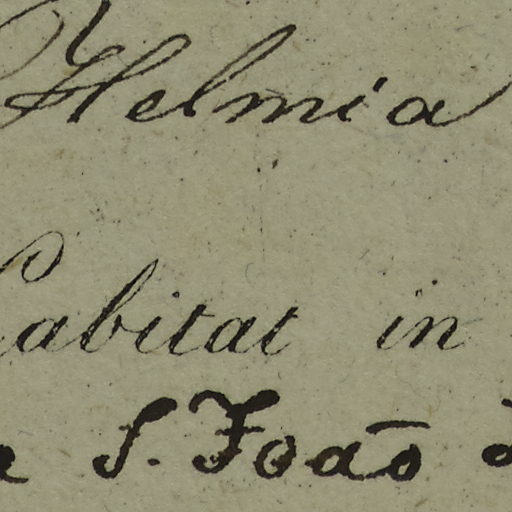 Helmia
Habitat in
S. João